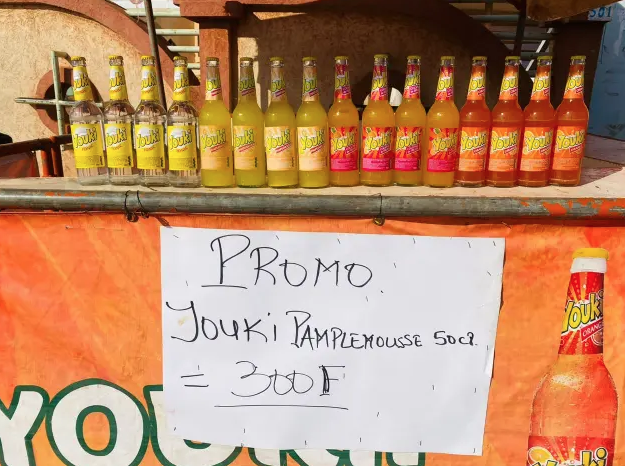 501
Youki Youki Youki Youki Youki Youki Youki Youki Youki Youki Youki Youki Youki Youki Youki Youki
PROMO.
YOUKi PAMPLEMOUSSE 50cl.
= 300F
Youki
ORANGE
YOUKI
Youki